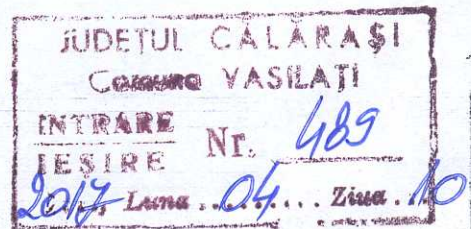 JUDEȚUL CĂLĂRAȘI
Comuna VASILAȚI
INTRARE
IEȘIRE Nr. 489
2017 Luna ..04...... Ziua ..10